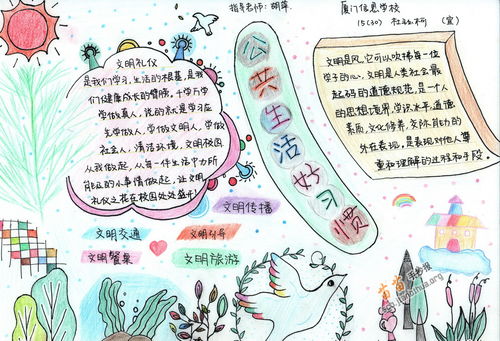 指导老师：胡萍
厦门信息学校
15(30) 杜社柯 (宣)
文明礼仪
是我们学习、生活的根基，是我
们健康成长的臂膀，千学万学
学做真人，说的就是学习应
先学做人，学做文明人，学做
社会人，清洁环境，文明校园
从我做起，从每一件生活中力所
能及的小事情做起，让文明
礼仪之花在校园处处盛开！
公共生活好习惯
文明是风，它可以吹拂每一位
学子的心，文明是人类社会最
起码的道德规范，是一个人
的思想境界，学识水平，道德
素质，文化修养，交际能力的
外在表现，是表现对他人尊
重和理解的过程和手段。
文明传播
文明交通
文明引导
文明餐桌
文明旅游